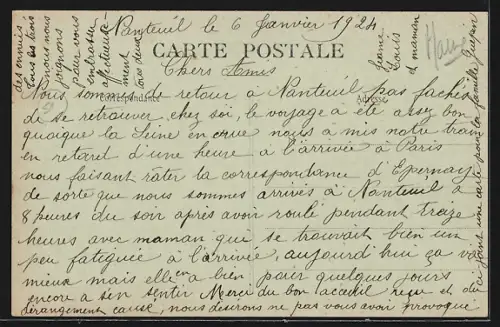 Nanteuil le 6 Janvier 1924
CARTE POSTALE
Correspondance
Adresse
Chers Amis
Nous sommes de retour à Nanteuil pas fachés
de se retrouver chez soi, le voyage a été assez bon
quoique la Seine en crue nous a mis notre train
en retard d'une heure à l'arrivée à Paris
nous faisant rater la correspondance d'Epernay
de sorte que nous sommes arrivés à Nanteuil à
8 heures du soir après avoir roulé pendant treize
heures avec maman qui se trouvait bien un
peu fatiguée à l'arrivée, aujourd'hui ça va
mieux mais elle en a bien pour quelques jours
encore a s'en sentir Merci du bon acceuil reçu et du
dérangement causé, nous desirons ne pas vous avoir provoqué
des ennuis
tous les trois
nous nous
joignons
pour vous
embrasser
affectueuse
ment
tous deux
Jeanne
Louis
et maman
ci joint une carte pour la famille